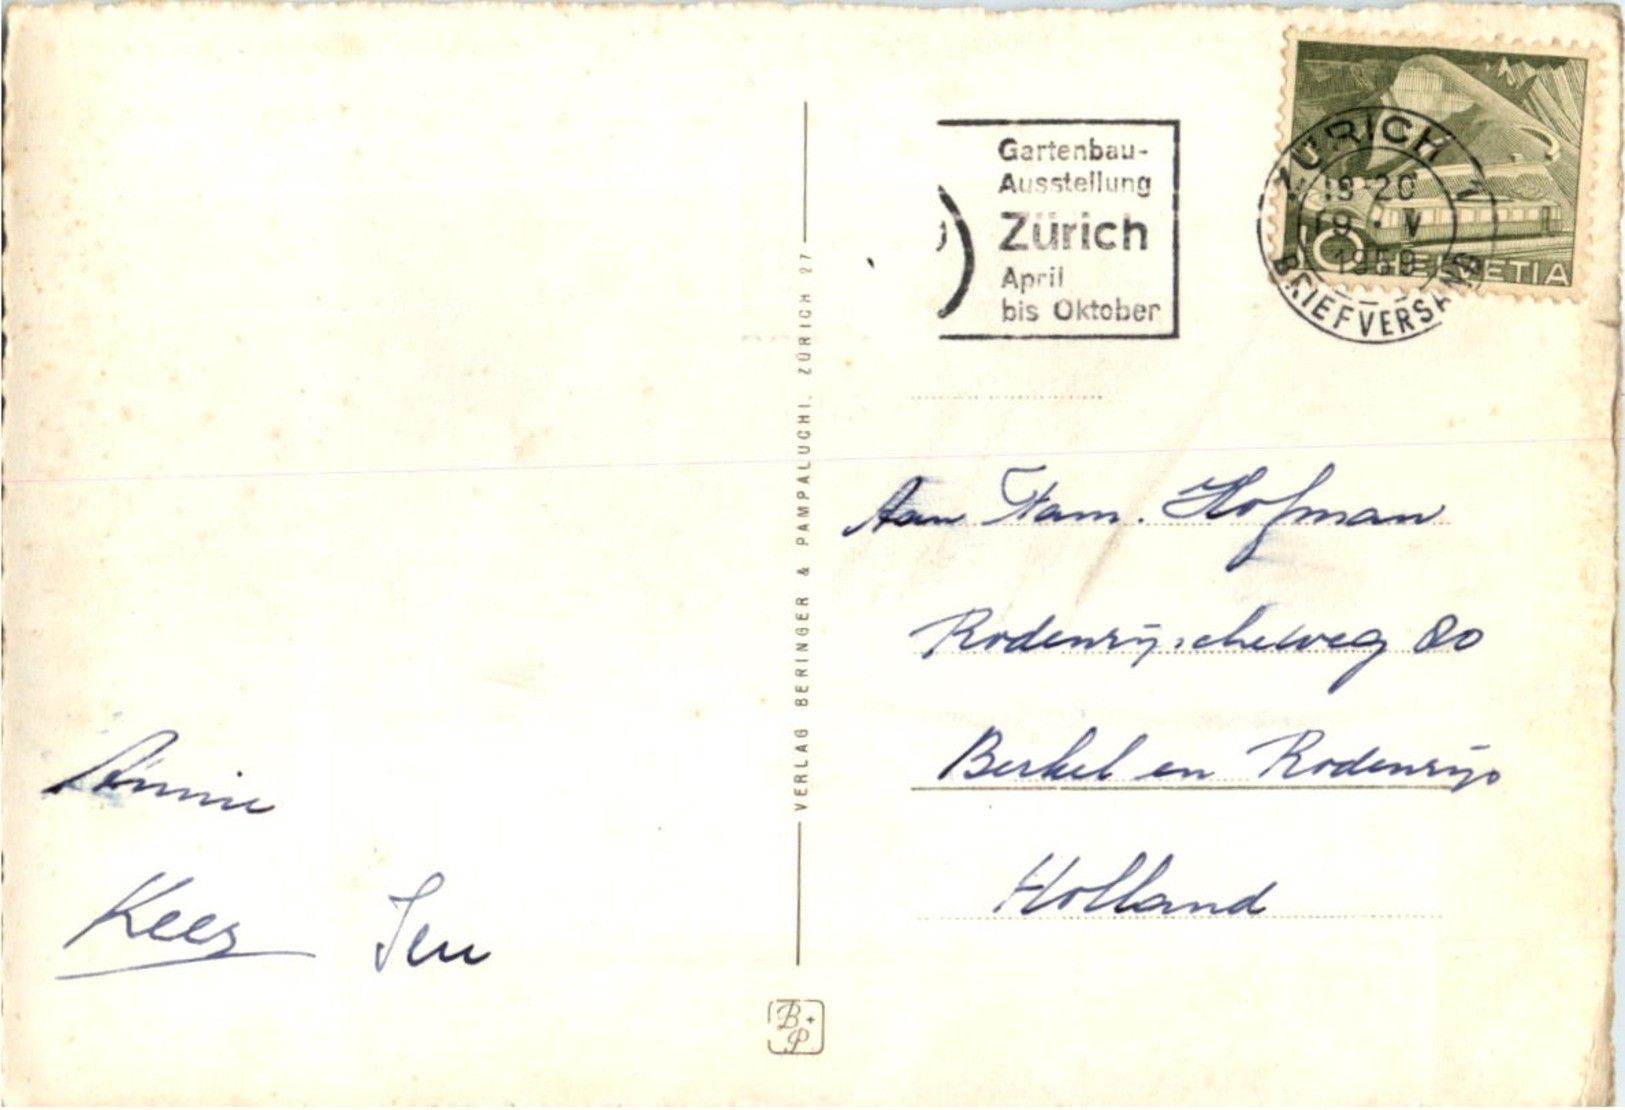 Gartenbau-
Ausstellung
Zürich
April
bis Oktober
ZÜRICH 1
18-20
19. V
1959
BRIEFVERSAND
10 HELVETIA
VERLAG BERINGER & PAMPALUCHI. ZÜRICH 27
Aan Fam. Hofman
Rodenrijscheweg 80
Berkel en Rodenrijs
Holland
Annie
Kees
B+P